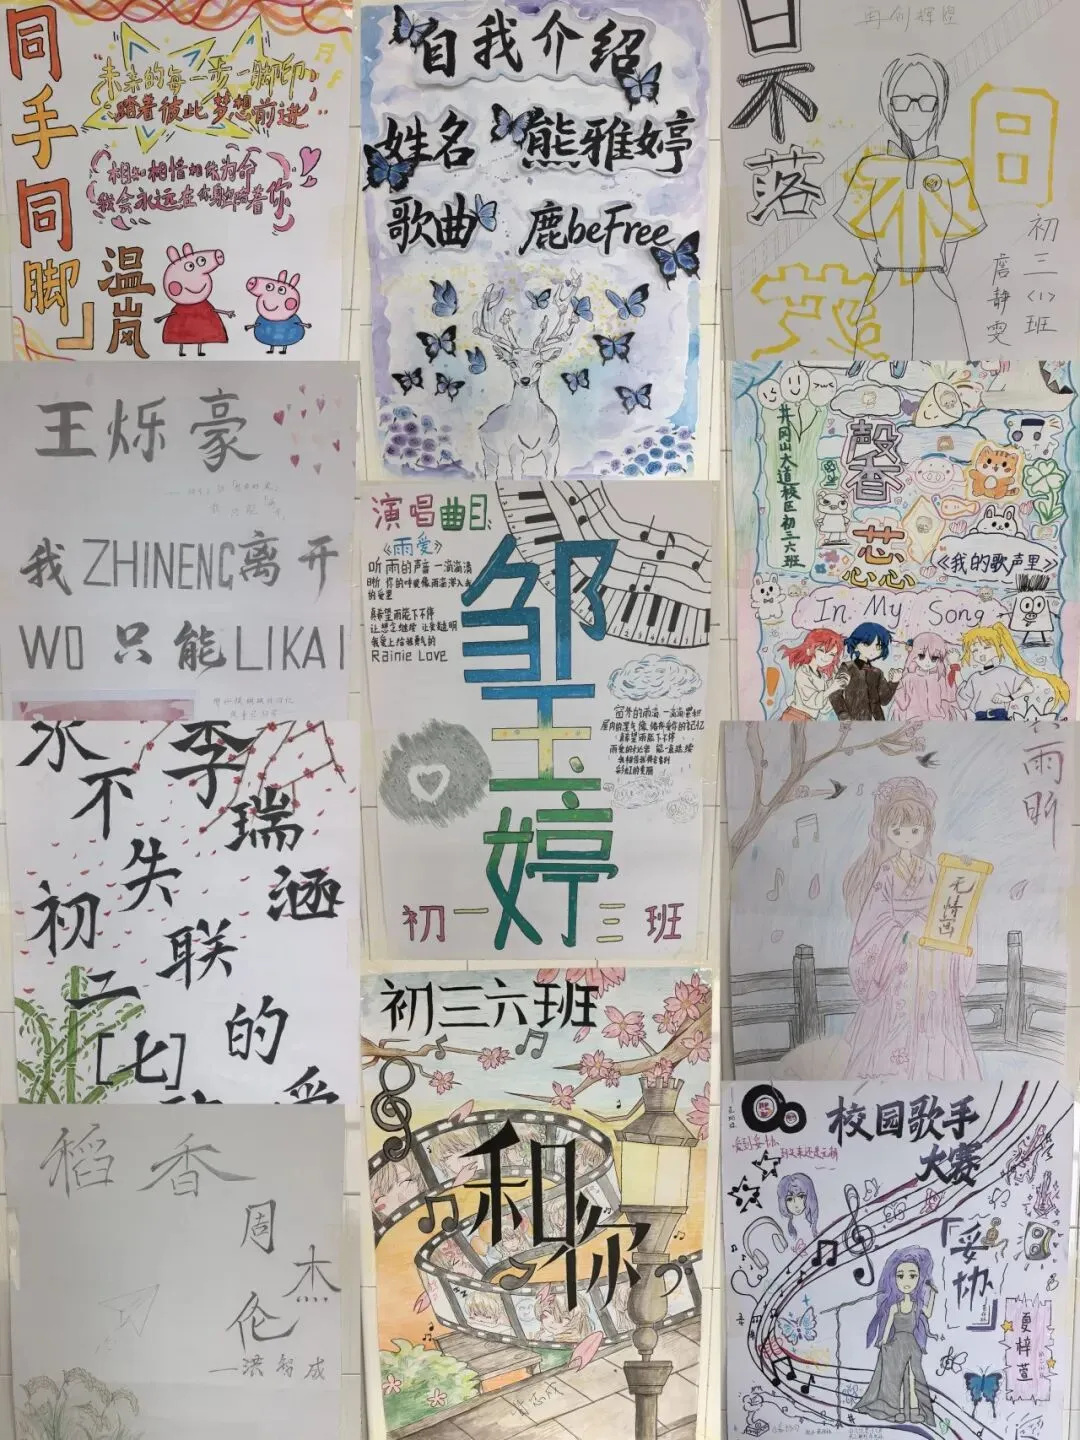 同手同脚
未来的每一步一脚印
踏着彼此梦想前进
相知相惜相依为命
我会永远在你身边陪着你
温岚
自我介绍
姓名 熊雅婷
歌曲 鹿beFree
再创辉煌
日不落
日
不
落
初三(1)班
詹静雯
王烁豪
我ZHINENG离开
WO只能LIKAI
演唱曲目、
《雨爱》
听雨的声音一滴滴清晰
你的呼吸像雨滴渗入我的爱里
真希望雨能下不停
让想念继续 让爱透明
我爱上给我勇气的
Rainie Love
邹玉婷
窗外的雨滴一滴滴累积
屋内的湿气像储存爱你的记忆
真希望雨能下不停
雨爱的秘密 能一直延续
我相信我将会看到
彩虹的美丽
初一三班
井冈山大道校区初三六班
馨芯
《我的歌声里》
In My Song
永不失联的爱
李瑞涵
初二[七]
雨昕
无情画
初三六班
和你
稻香
周杰伦
—洪智成
校园歌手
大赛
「妥协」
夏梓萱